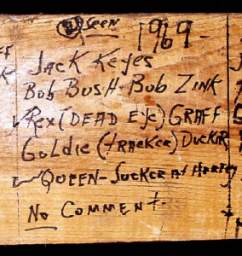 Seen 1969
Jack Keyes
Bob Bush - Bob Zink
Rex (DEAD Eye) GRAFF
Goldie (tracker)
Queen - Sucker at Hearts
No Comment